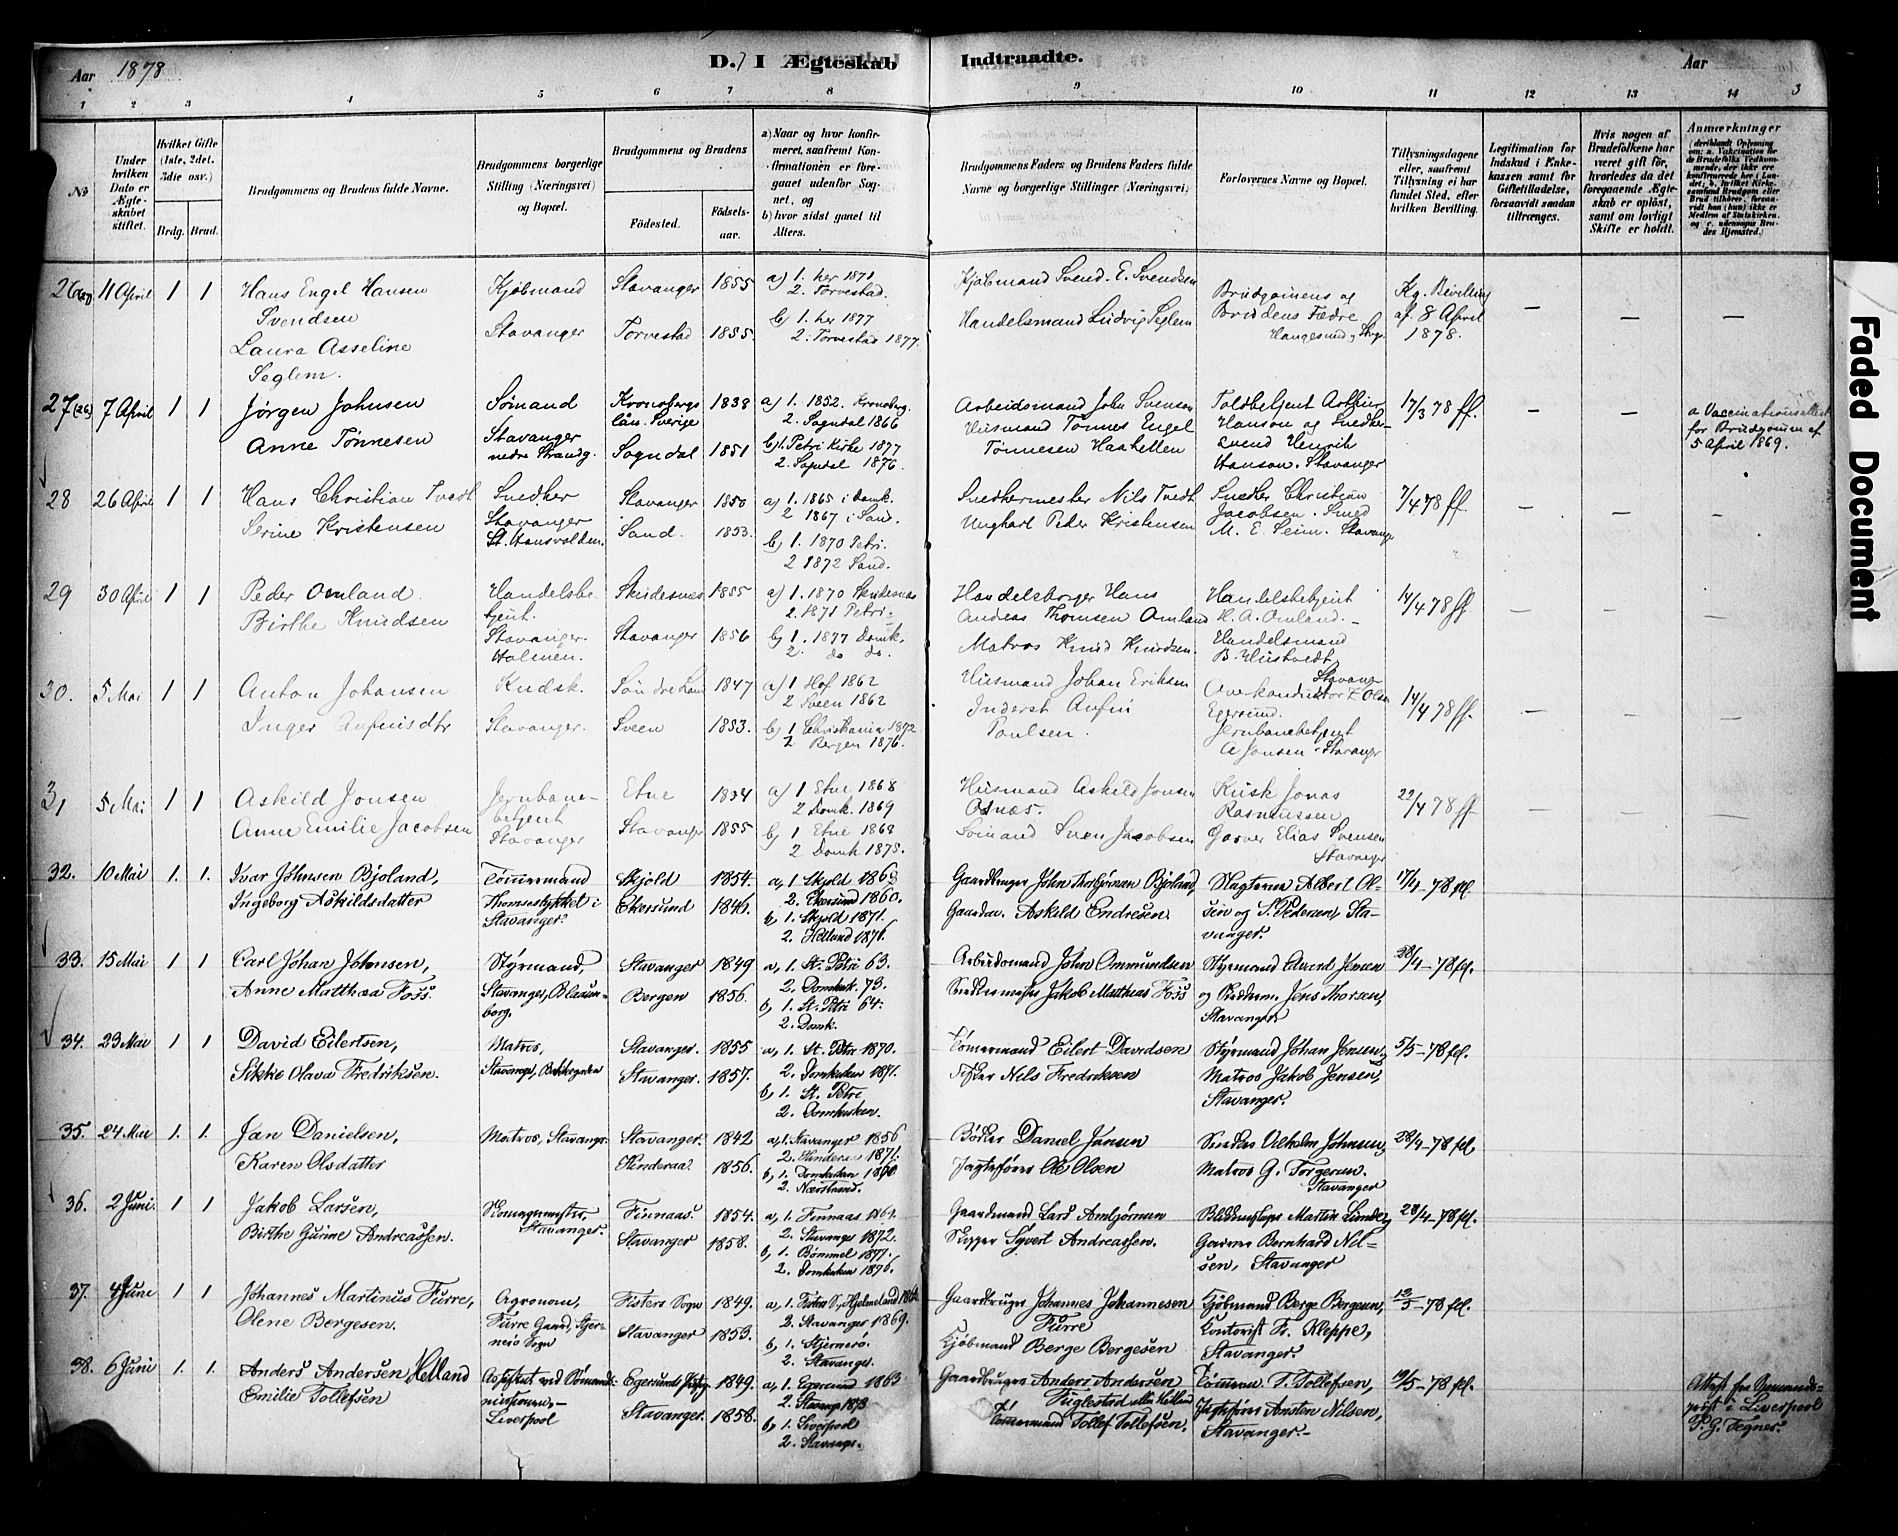 Aar 1878
D. I Ægteskab Indtraadte.
Aar
1 2 3 4 5 6 7 8 9 10 11 12 13 14 3
No
Under hvilken Dato er Ægteskabet stiftet.
Hvilket Gifte (1ste, 2det, 3die osv.)
Brdg. Brud.
Brudgommens og Brudens fulde Navne.
Brudgommens borgerlige Stilling (Næringsvei) og Bopæl.
Brudgommens og Brudens
Fødested.
Fødselsaar.
a) Naar og hvor konfirmeret, saafremt Konfirmationen er foregaaet udenfor Sognet, og
b) hvor sidst gaaet til Alters.
Brudgommens Faders og Brudens Faders fulde Navne og borgerlige Stillinger (Næringsvei)
Forlovernes Navne og Bopæl.
Tillysningsdagene eller, saafremt Tillysning ei har fundet Sted, efter hvilken Bevilling.
Legitimation for Indskud i Enkekassen samt for Giftetilladelse, forsaavidt saadan tiltrænges.
Hvis nogen af Brudefolkene har været gift før, hvorledes da det foregaaende Ægteskab er opløst, samt om lovligt Skifte er holdt.
Anmærkninger
26 11 April 1 1
Hans Engel Hansen
Svendsen
Laura Asseline
Seglem.
Kjøbmand
Stavanger
Stavanger 1855
Torvestad 1855.
a) 1. her 1871
2. Torvestad.
b) 1. her 1877
2. Torvestad 1877.
Kjøbmand Svend. E. Svendsen
Handelsmand Ludvig Seglem
Brudgomens og
Brudens Fædre
Kg. Bevilling
af 8 April
1878.
27 (26) 7 April 1 1
Jørgen Johnsen
Anne Tønnesen
Sømand
Stavanger
nedre Strandg.
Kronobergs 1838
län. Sverige
Sogndal 1851
a) 1. 1852. Kronoberg.
2. Sogndal 1866
b) 1. Petri Kirke 1877
2. Sogndal 1876.
Arbeidsmand John Svenson
Husmand Tønnes Engel
Tønnesen Haahellen
Toldbetjent Arthur
Hanson og Snedker
Svend Henrik
Hanson. Stavanger
17/3 78 ff.
a Vaccinationsattest
for Brudgomen af
5 April 1869.
28 26 April 1 1
Hans Christian Tvedt
Serine Kristensen
Snedker
Stavanger
St. Hansvolden.
Stavanger 1850
Sand. 1853.
a) 1. 1865 i Domk.
2 1867 i Sand.
b) 1. 1870 Petri.
2 1872 Sand.
Snedkermester Nils Tvedt
Ungkarl Peder Kristensen
Snedker Christian
Jacobsen. Smed
M. E. Seim. Stavanger
7/4 78 ff.
29 30 April 1 1
Peder Omland.
Birthe Knudsen
Handelsbe
tjent.
Stavanger.
Holmen.
Skudesnes 1855
Stavanger 1856
a) 1. 1870 Skudesnes
2. 1871 Petri
b) 1. 1877 Domk.
2. do do.
Handelsborger Hans
Andreas Thomsen Omland
Matros Knud Knudsen.
Handelsbetjent
H. A. Omland.
Handelsmand
B. Hustvedt
Stavanger
14/4 78 ff
30. 5 Mai 1 1
Anton Johansen
Inger Aufinsdtr
Kudsk.
Stavanger.
Søndre Land 1847
Sveen 1853.
a) 1 Hof 1862
2 Sveen 1862
b) 1 Christiania 1872
2 Bergen 1876.
Husmand Johan Eriksen
Inderst Aufin
Poulsen.
Overkonduktør E Olsen
Egersund.
Jernbanebetjent
A Jonsen. Stavanger
14/4 78 ff.
31 5 Mai 1 1
Askild Jonsen
Anne Emilie Jacobsen
Jernbane-
betjent
Stavanger
Etne 1854
Stavanger 1855
a) 1 Etne 1868
2 Domk. 1869
b) 1 Etne 1868
2 Domk 1875.
Husmand Askild Jonsen
Osnæs.
Sømand Sven Jacobsen
Kusk Jonas
Rasmussen
Garver Elias Svensen
Stavanger
22/4 78 ff
32. 10 Mai 1. 1.
Ivar Johnsen Bjoland,
Ingeborg Askildsdatter
Tømmermand
Stavanger.
Skjold 1854.
Ekersund 1846.
a, 1 Skjold 1869
2. Ekersund 1860.
b, 1. Skjold 1871.
2. Hetland 1876.
Gaardbruger John Thorbjørnsen Bjoland,
Gaardm. Askild Endresen.
Slagterne Albert Ol-
sen og S. Pedersen, Sta-
vanger.
17/4 -78 fl.
33. 15 Mai 1 1
Carl Johan Johnsen,
Anne Matthea Foss.
Styrmand,
Stavanger, Blaasen-
borg.
Stavanger 1849
Bergen 1856.
a, 1. St. Petri 63.
2. Domkirk. 73.
b, 1. St. Petri 64.
2. Domk.
Arbeidsmand John Ommundsen
Snedkermester Jakob Matthias Foss
Styrmand Jensen
og Jens Thorsen,
Stavanger.
28/4 -78 fl.
34. 23 Mai 1 1
David Eilertsen,
Sikkie Olava Fredriksen.
Matros,
Stavanger, Bakkegaden
Stavanger. 1855
Stavanger. 1857.
a, 1. St. Petri 1870.
2. Domkirken 1871.
b, 1. St. Petri
2. Domkirken.
Tømmermand Eilert Davidsen
Fisker Nils Fredriksen
Styrmand Johan Jensen,
Matros Jakob Jensen,
Stavanger.
5/5 -78 fl.
35. 24 Mai 1. 1.
Jan Danielsen,
Karen Olsdatter
Matros, Stavanger
Stavanger. 1842
Hinderaa. 1856.
a, 1. Stavanger 1856
2. Hinderaa 1871.
b, 1. Domkirken 1870
2. Nærstrand.
Bødker Daniel Jansen
Jagtefører Ole Olsen
Snedker Vilhelm Johnsen,
Matros G. Torgersen.
Stavanger
28/4 -78 fl.
36. 2 Juni 1 1
Jakob Larsen,
Birthe Gurine Andreassen.
Stavanger.
Finnaas. 1854.
Stavanger 1858.
a, 1. Finnaas 1869.
2. Stavanger 1872.
b, 1. Bømmel 1877.
2. Domkirken 1876.
Gaardmand Lars Ambjørnsen
Skipper Syvert Andreassen.
Martin Lunde,
Garver Bernhard Nil-
sen, Stavanger
28/4 -78 fl.
37. 4 Juni 1 1
Johannes Martinus Furre,
Olene Bergesen.
Agronom,
Furre Gaard, Stjer-
nerø Sogn
Fisters Sogn 1849.
Stavanger 1853.
a, 1. Fisters S., Hjelmeland 1864.
2. Stavanger 1869.
b, 1. Stjernerø.
2. Stavanger.
Gaardbruger Johannes Johannesen
Furre
Kjøbmand Berge Bergesen
Kjøbmand Berge Bergesen,
Kontorist Fr. Kleppe,
Stavanger.
12/5 -78 fl.
38. 6 Juni 1. 1.
Anders Andersen Helland
Emilie Tollefsen
Assistent ved Sømands-
missionen,
Liverpool
Egersunds 1849.
Stavanger. 1858.
a, 1. Egersund 1863
2. Stavanger 1873
b, 1. Liverpool
2. Stavanger.
Gaardbruger Anders Andersen
Fuglestad eller Helland
Tømmermand Tollef Tollefsen.
Tømmerm. T. Tollefsen,
Jagtefører Austen Nilsen,
Stavanger.
19/5 -78 fl.
Attest fra Sømands-
præst i Liverpool
P. G. Tegner.
Faded Document